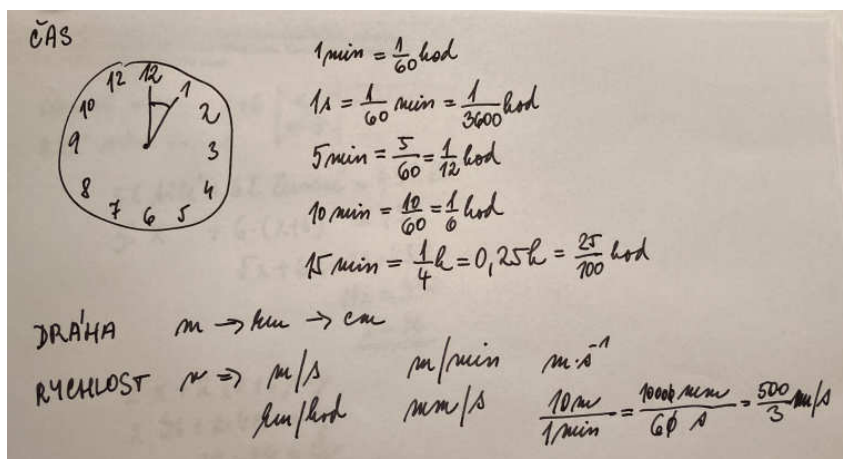 ČAS
12 12 1
10 2
9 3
8 4
7 6 5
1 min = 1/60 hod
1s = 1/60 min = 1/3600 hod
5 min = 5/60 = 1/12 hod
10 min = 10/60 = 1/6 hod
15 min = 1/4 h = 0,25h = 25/100 hod
DRÁHA m → km → cm
RYCHLOST v ⇒ m/s m/min m·s⁻¹
km/hod mm/s 10m/1min = 10000 mm/60 s = 500/3 mm/s